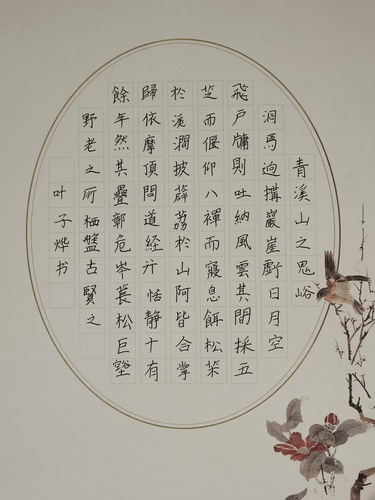 青溪山之鬼峪
洞馬逈搆巖崖虧日月空
飛户牖則吐納風雲其間採五
芝而偃仰八禪而寢息餌松
於溪澗披薜荔於山阿皆合掌
歸依摩頂問道經行恬靜十有
餘年然其疊鄣危岑萇松巨壑
野老之所栖盤古賢之
叶子烨书